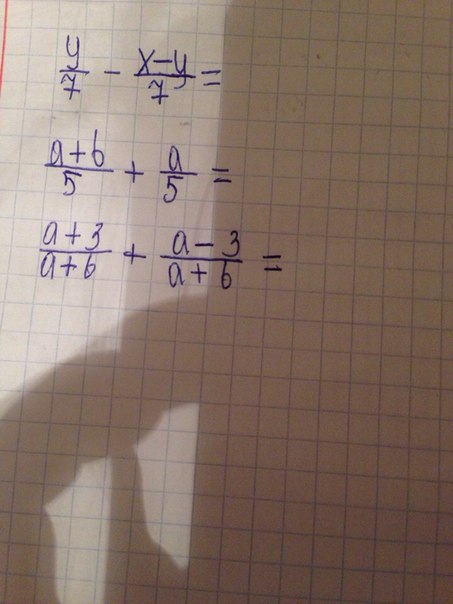 y/7 - x-y/7 =
a+b/5 + a/5 =
a+3/a+b + a-3/a+b =